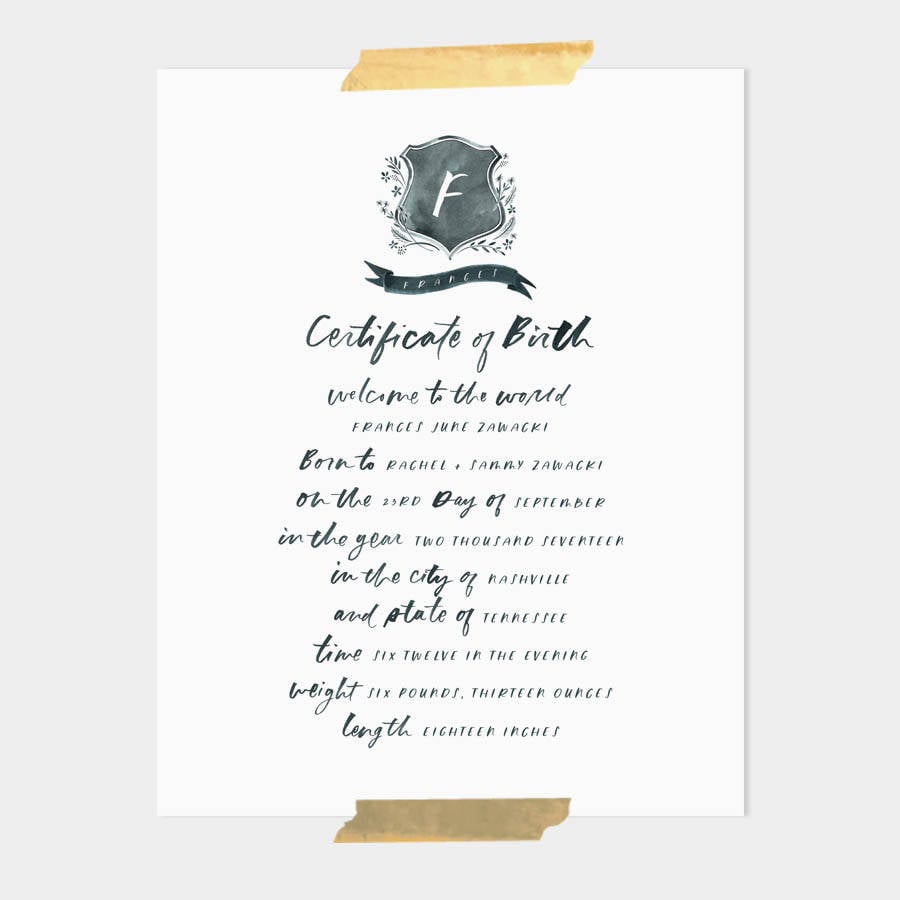 F
FRANCES
Certificate of Birth
welcome to the world
FRANCES JUNE ZAWACKI
Born to RACHEL + SAMMY ZAWACKI
on the 23RD Day of SEPTEMBER
in the year TWO THOUSAND SEVENTEEN
in the city of NASHVILLE
and state of TENNESSEE
time SIX TWELVE IN THE EVENING
weight SIX POUNDS, THIRTEEN OUNCES
length EIGHTEEN INCHES